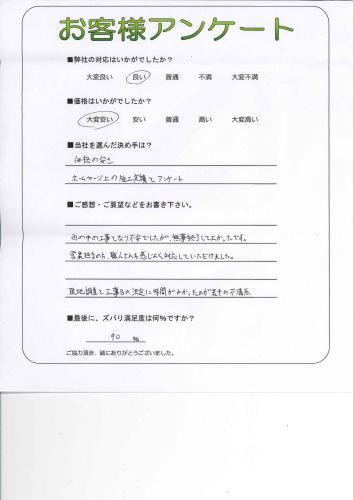 お客様アンケート
■弊社の対応はいかがでしたか?
大変良い 良い 普通 不満 大変不満
■価格はいかがでしたか?
大変安い 安い 普通 高い 大変高い
■当社を選んだ決め手は?
価格の安さ
ホームページ上の施工実績とアンケート
■ご感想・ご要望などをお書き下さい。
の中の工事となり不安でしたが、無事終了してよかったです。
営業担当の方、職人さんも感じよく対応していただけました。
現地調査と工事日の決定に時間がかかったのが若干の不満点
■最後に、ズバリ満足度は何%ですか?
90 %
ご協力頂き、誠にありがとうございました。